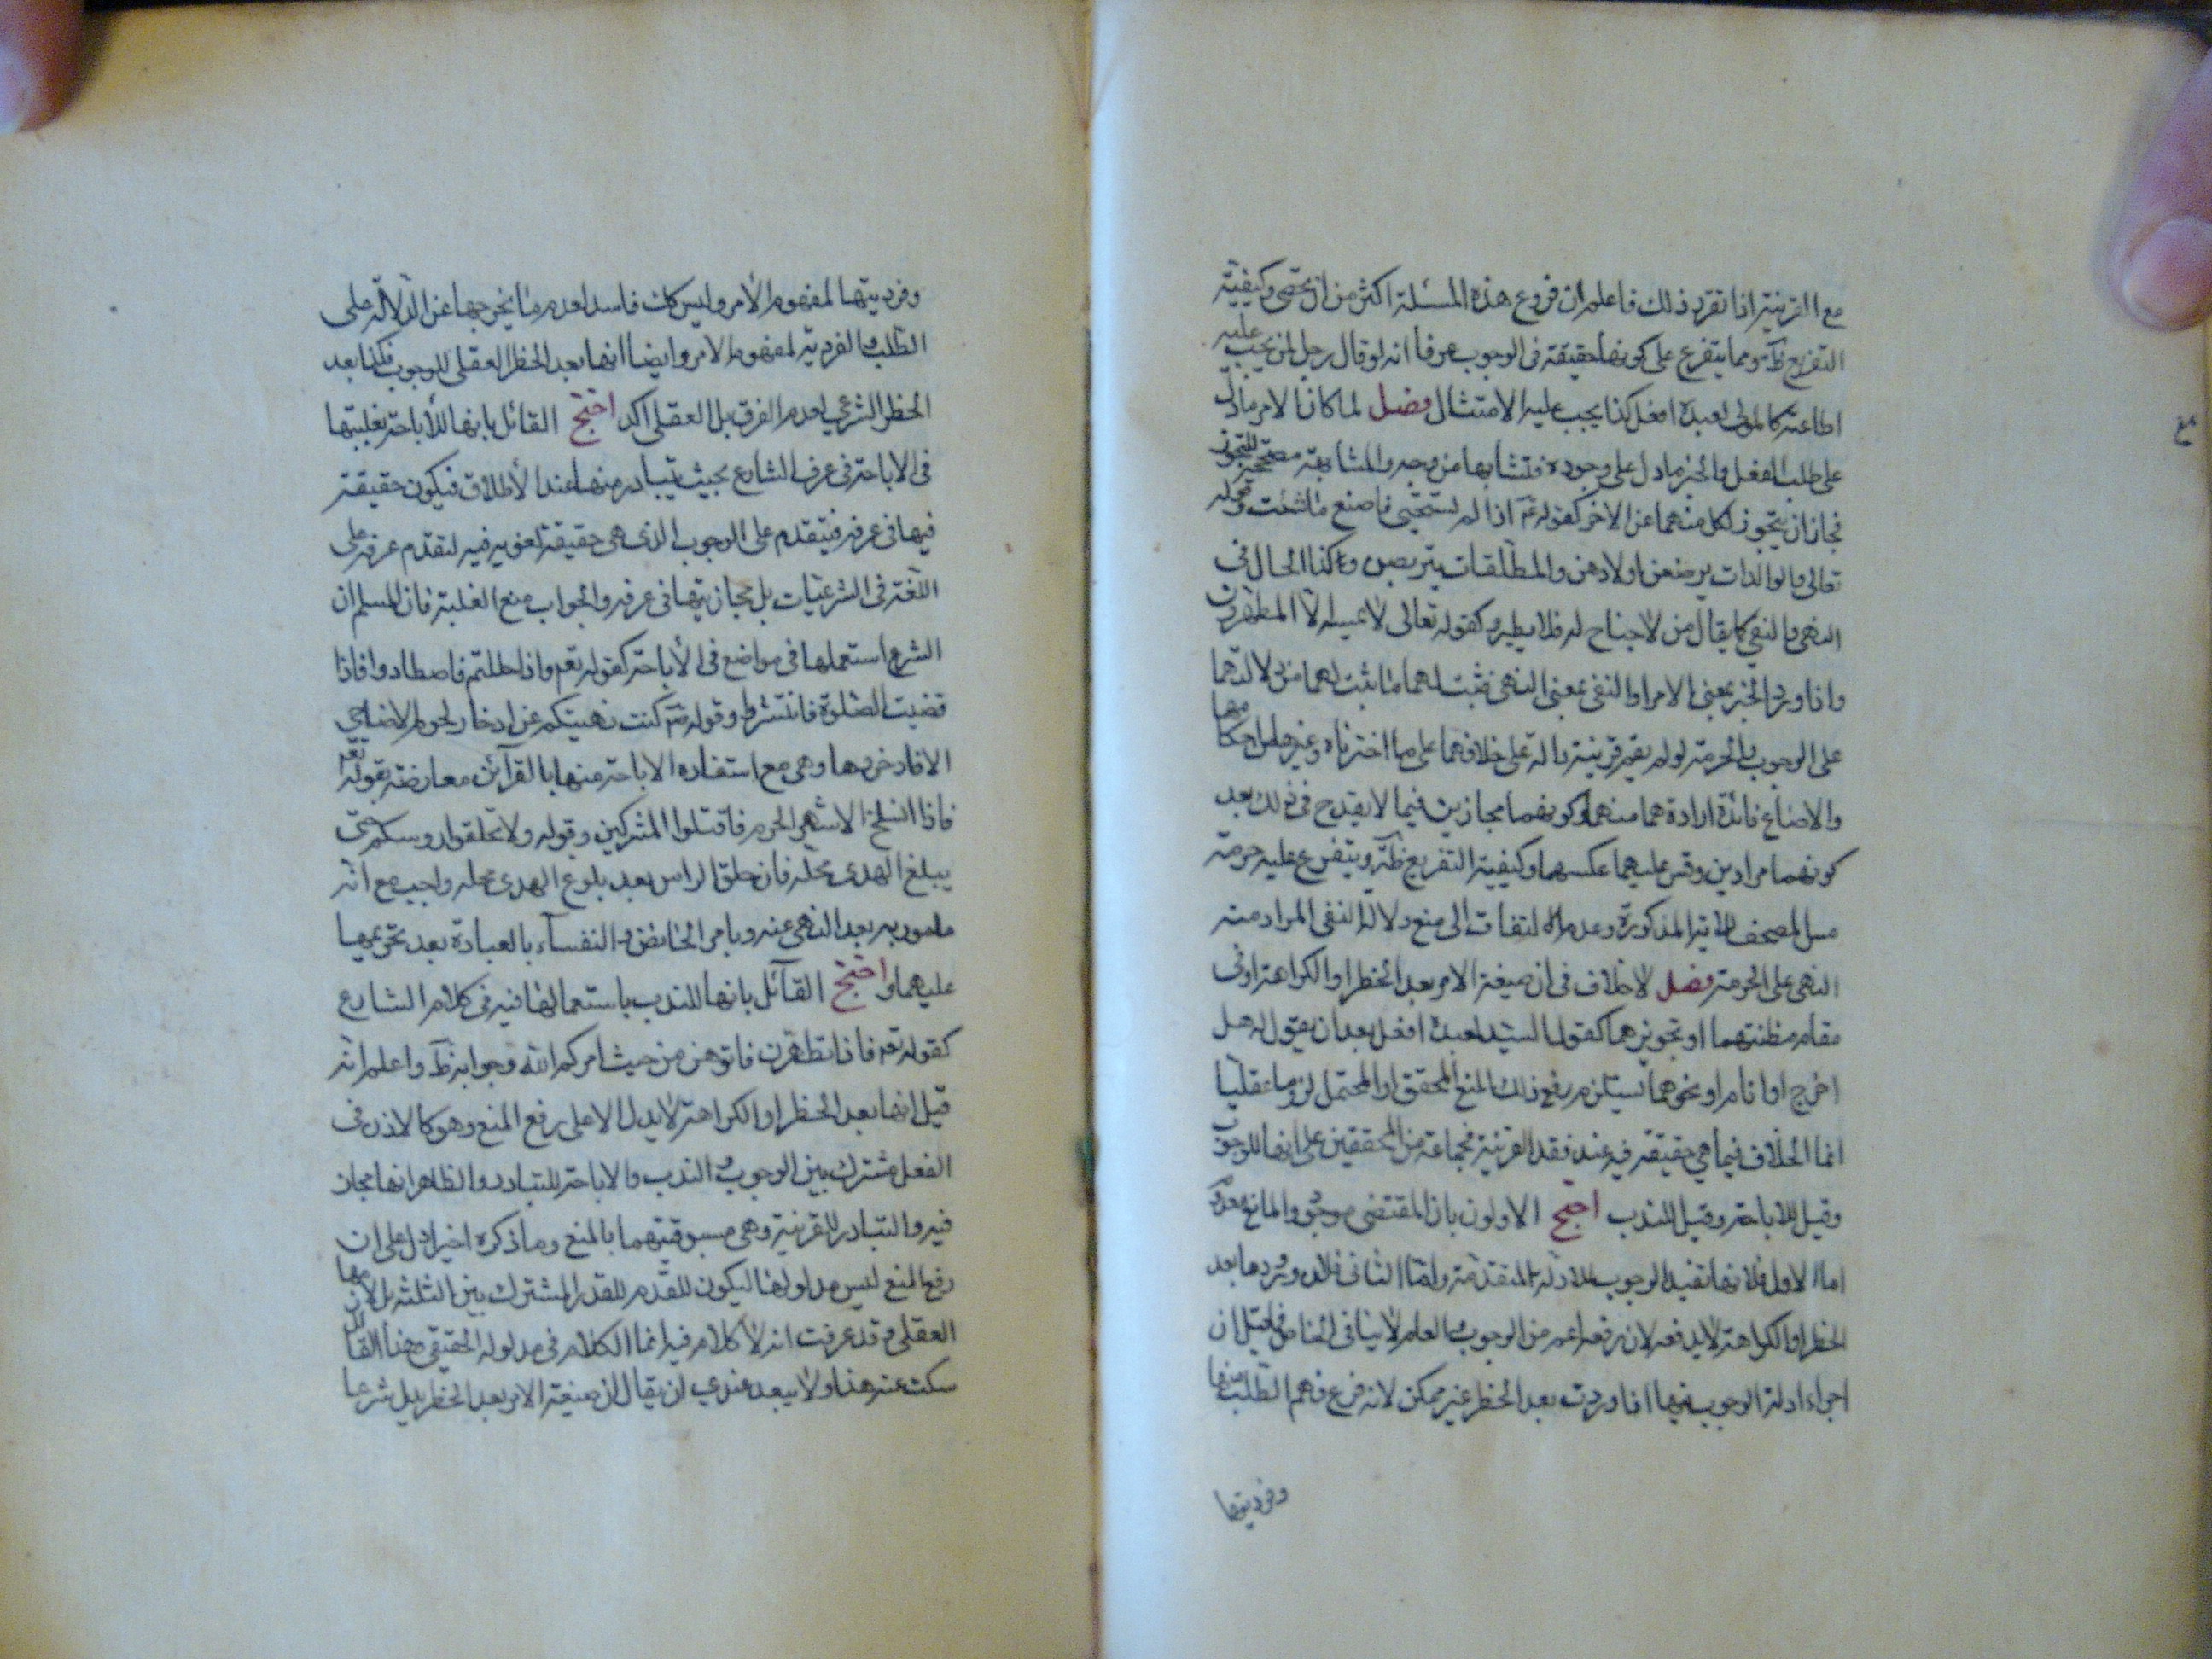 مع القرينة اذا تقرر ذلك فاعلم ان فروع هذه المسئلة اكثر من ان يحصى وكيفية
التفريع ظ ومما يتفرع على كونها حقيقة فى الوجوب عرفا انه لو قال رجل لمن يجب عليه
اطاعته كالمولى لعبده افعل كذا يجب عليه الامتثال فصل لما كان الامر مادل
على طلب الفعل والخبر مادل على وجوده فتشابها من وجه والمشابهة مصححة للتجوز
فجاز ان يتجوز لكل منهما عن الاخر كقوله ع اذا لم تستحيى فاصنع ما شئت وقوله
تعالى والوالدات يرضعن اولادهن والمطلقات يتربصن وكذا الحال فى
النهى والنفى كما يقال من لاجناح له فلا يطير وكقوله تعالى لا يمسه الا المطهرون
واذا ورد الخبر بمعنى الامر او النفى بمعنى النهى فثبت لهما ما يثبت لهما من دلالتهما
على الوجوب والحرمة لو لم يقم قرينة دالة على خلافهما على ما اخترناه وغير ذلك من احكامهما
والاوضاع فائدة ارادة هما منهما وكونهما مجازين فيما لا يقدح فى ذلك بعد
كونهما مرادين وقس عليهما عكسهما وكيفية التفريع ظ ويتفرع عليه حرمة
مس المصحف للآية المذكورة وعدم الالتفات الى منع دلالة النفى المراد منه
النهى على الحرمة فصل لا خلاف فى ان صيغة الامر بعد الحظر او الكراهة او فى
مقام مظنتهما او تجويزهما كقول السيد لعبده افعل بعد ان يقول له هل
اخرج او انام او نحوهما تستلزم رفع ذلك المنع المحقق او المحتمل لزوما عقليا
انما الخلاف فيما هى حقيقة فيه عند فقد القرينة فجماعة من المحققين على انها للوجوب
وقيل للاباحة وقيل للندب احتج الاولون بان المقتضى موجود والمانع
اما الاول فلانها تفيد الوجوب للادلة المتقدمة واما الثانى فلان ورودها بعد
الحظر او الكراهة لا يدفعه لان رفعه اعم من الوجوب والعام لا ينافى الخاص فما قيل ان
اجراء ادلة الوجوب فيها اذا وردت بعد الحظر غير ممكن لانه فرع فهم الطلب منها
وفرديتها
وفرديتها لمفهوم الأمر وليس كان فاسد لعدم ما يخرجها عن الدلالة على
الطلب والفردية لمفهوم الامر وايضا انها بعد الحظر العقلى للوجوب فكذا بعد
الحظر الشرعى لعدم الفرق بل العقلى اكد احتج القائل بانها للأباحة بغلبتها
فى الاباحة فى عرف الشارع بحيث يتبادر منها عند الأطلاق فيكون حقيقة
فيها فى عرفه فيتقدم على الوجوب الذى هى حقيقة لغوية فيه لتقدم عرفه على
اللغة فى الشرعيات بل مجازيتها فى عرفه والجواب منع الغلبة فان المسلم ان
الشرع استعملها فى مواضع فى الأباحة كقوله تعم واذا حللتم فاصطادوا فاذا
قضيت الصلوة فانتشروا وقوله ع كنت نهيتكم عن ادخار لحوم الاضاحى
الا فادخروها وهى مع استفادة الاباحة منها بالقرآئن معارضة بقوله تعم
فاذا انسلخ الاشهر الحرم فاقتلوا المشركين وقوله ولا تحلقوا روسكم حتى
يبلغ الهدى محله فان حلق الراس بعد بلوغ الهدى محله واجب مع انه
مامور به بعد النهى عنه وبامر الحائض والنفسآء بالعبادة بعد تحريمها
عليهما واحتج القآئل بانها للندب باستعمالها فيه فى كلام الشارع
كقوله تعم فاذا تطهرن فاتوهن من حيث امركم الله وجوابه ظ واعلم انه
قيل انها بعد الحظر او الكراهة لا يدل الا على رفع المنع وهو كالاذن فى
الفعل مشترك بين الوجوب و الندب والاباحة للتبادر والظاهر انها مجاز
فيه والتبادر للقرينة وهى مسبوقيتهما بالمنع وما ذكره اخيرا دل على ان
رفع المنع ليس مدلولها ليكون للقدر المشترك بين الثلثة بل لازمها
العقلى وقد عرفت انه لا كلام فيه انما الكلام فى مدلوله الحقيقى فهذا القائل
سكت عنه هذا ولا يبعد عندى ان يقال ان صيغة الامر بعد الحظر يدل شرعا